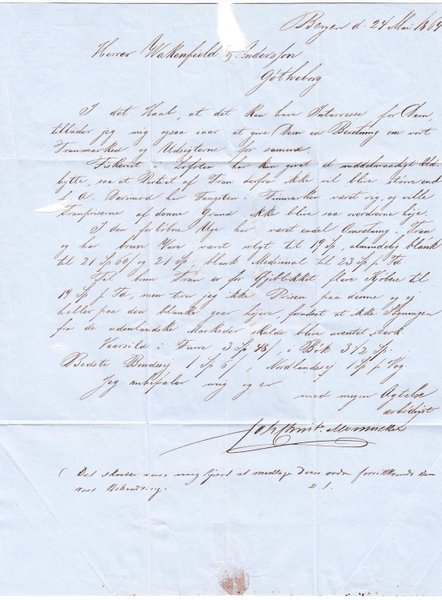 Bergen d. 24 Mai 186
Herrer Wakenfield & Andersson
Götheborg
I det Haab, at det kan have Interesse for Dem,
tillader jeg mig ogsaa at give Dem en Beretning om vort
Tranmarked og Udsigterne for samme
Fiskeriet i Lofoten har kun givet de middelmaadigt Ud-
bytte, saa at Partiet af Tran derfra ikke vil blive stort
har Fangsten i Finmarken været rig, og ville
Tranpriserne af denne Grund ikke blive saa høje.
I den forløbne Uge har været endel Omsætning i Tran
og har brun Vare været solgt til 19 Sp, almindelig blank
til 21 Sp 60/ og 21 Sp, blank Medicinal til 23 Sp p. Td
Til brun Tran er for Øjeblikket flere Købere til
19 Sp p. Td, men tror jeg ikke Prisen paa denne og
heller paa den blanke gaar højere, forudsat at ikke Stigningen
fra de udenlandske Markeder skulde blive uventet stærk
Vaarsild i Tønde 3 Sp 48/, i Bøk 3 1/2 Sp.
Bedste 1 Sp 6/, Nordlandsk 1 Sp p. Vog
Jeg anbefaler mig og er
med megen Agtelse
ærbødigst
Joh Ernst Mowinckel
Det skulde være mig kjært at modtage Deres ordre
Behandling. D. S.